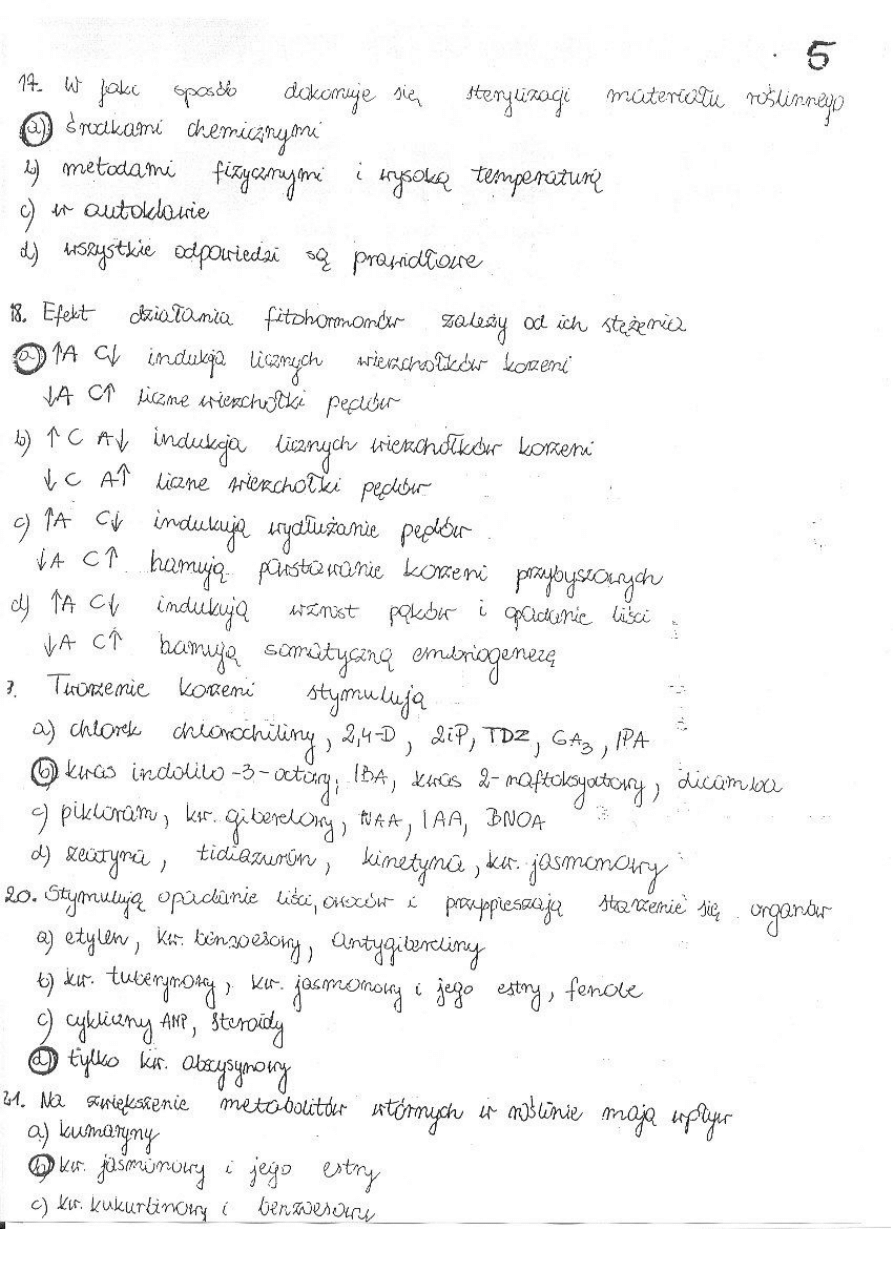 5
17. W jaki sposób dokonuje się sterylizacji materiału roślinnego
a) środkami chemicznymi
b) metodami fizycznymi i wysoką temperaturą
c) w autoklawie
d) wszystkie odpowiedzi są prawidłowe
18. Efekt działania fitohormonów zależy od ich stężenia
a) ↑A C↓ indukcja licznych wierzchołków korzeni
↓A C↑ liczne wierzchołki pędów
b) ↑C A↓ indukcja licznych wierzchołków korzeni
↓C A↑ liczne wierzchołki pędów
c) ↑A C↓ indukują wydłużanie pędów
↓A C↑ hamują powstawanie korzeni przybyszowych
d) ↑A C↓ indukują wzrost pąków i opadanie liści
↓A C↑ hamują somatyczną embriogenezę
9. Tworzenie korzeni stymulują
a) chlorek chlorochiliny, 2,4-D, 2iP, TDZ, GA3, IPA
b) kwas indolilo-3-octowy, IBA, kwas 2-naftoksyoctowy, dicamba
c) pikloram, kw. giberelowy, NAA, IAA, BNOA
d) zeatyna, tidiazuron, kinetyna, kw. jasmonowy
20. Stymulują opadanie liści, owoców i przyspieszają starzenie się organów
a) etylen, kw. benzoesowy, antygibereliny
b) kw. tuberynowy, kw. jasmonowy i jego estry, fenole
c) cykliczny AMP, steroidy
d) tylko kw. abscysynowy
21. Na zwiększenie metabolitów wtórnych w roślinie mają wpływ
a) kumaryny
b) kw. jasmonowy i jego estry
c) kw. kukurbinowy i benzoesowy